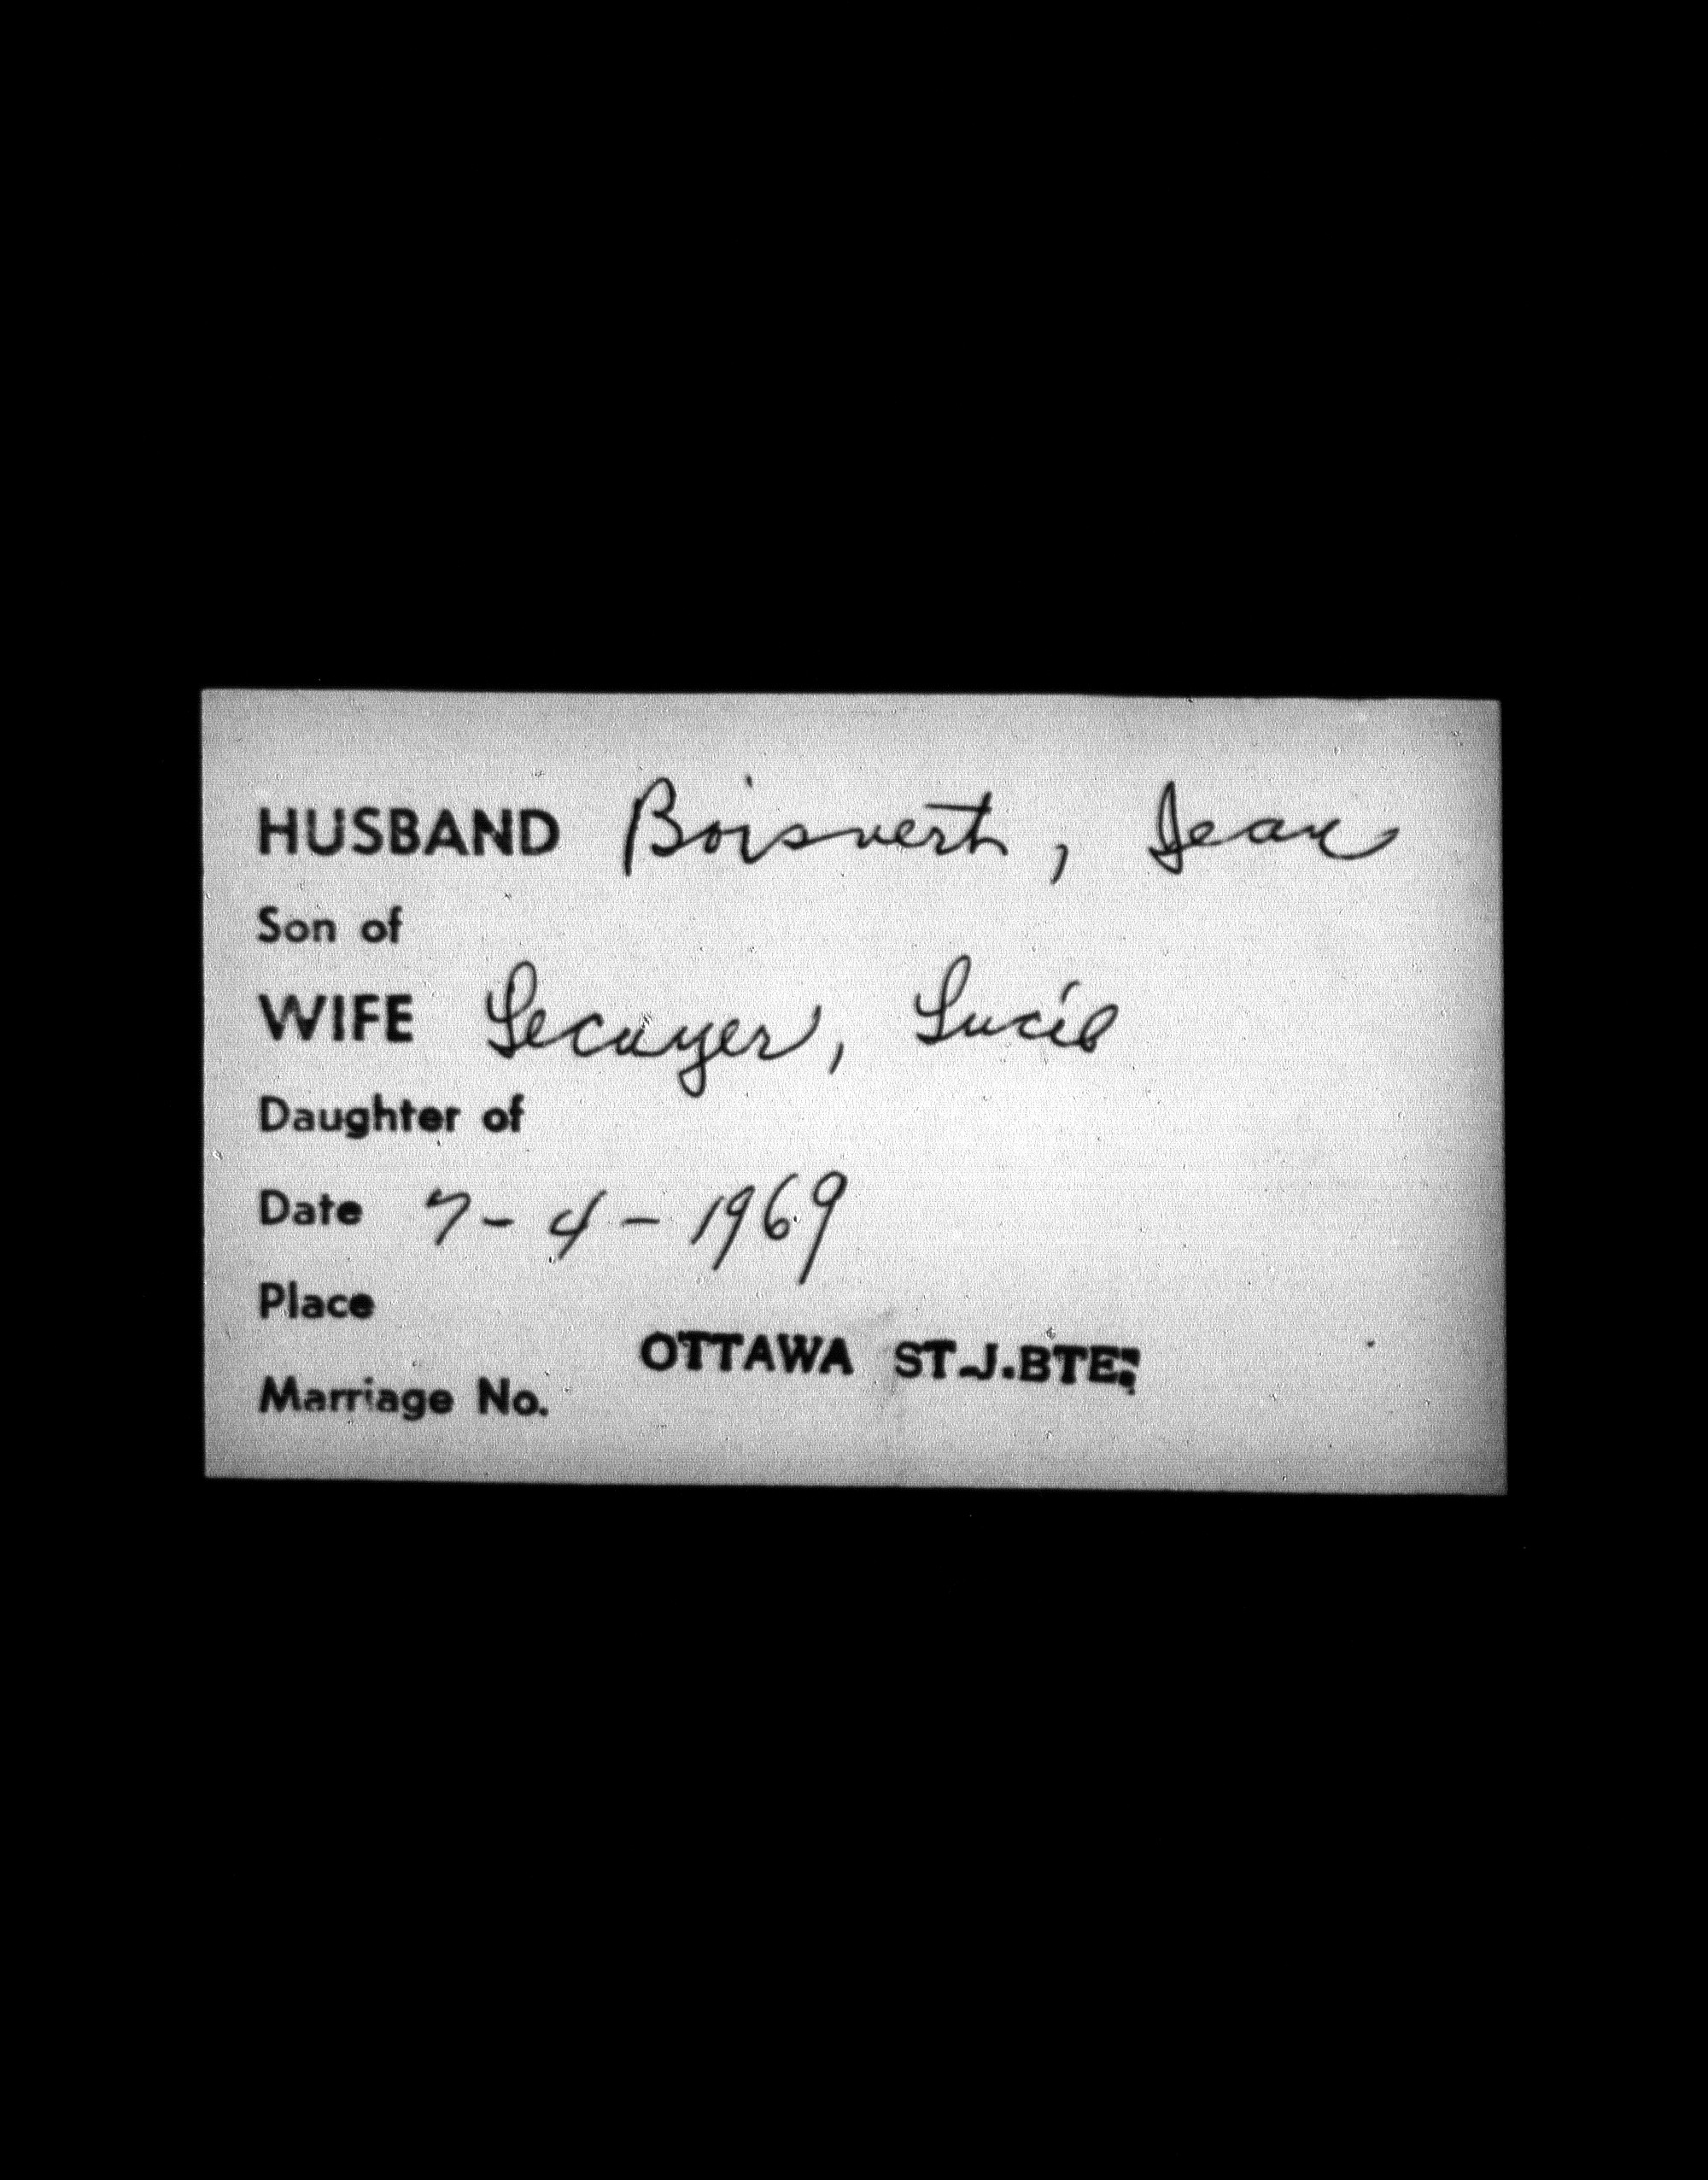 HUSBAND Boisvert, Jean
Son of
WIFE Lecuyer, Lucie
Daughter of
Date 7-4-1969
Place
OTTAWA ST.J.BTE.
Marriage No.